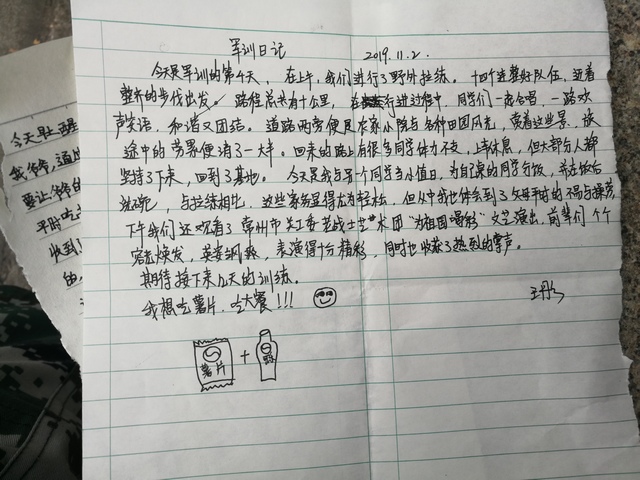 军训日记 2019.11.2.
今天是军训的第4天，在上午，我们进行了野外拉练。十四个连整好队伍，迈着
整齐的步伐出发。路程总共有十公里，在行进过程中，同学们一路合唱，一路欢
声笑语，和谐又团结。道路两旁便是农家小院与各种田园风光，赏着这些景，旅
途中的劳累便消了一大半。回来的路上有很多同学体力不支，上车休息，但大部分人都
坚持了下来，回到了基地。今天是我与另一个同学当小值日，为自己桌的同学打饭，并在饭后
洗碗，与拉练相比，这些家务显得尤为轻松，但从中我也体会到了父母平时的不易与操劳。
下午我们还观看了常州市关工委老战士艺术团“为祖国喝彩”文艺演出，前辈们个个
容光焕发，英姿飒爽，表演得十分精彩，同时也收获了热烈的掌声。
期待接下来几天的训练。
我想吃薯片，吃大餐！！！
王彤
薯片 +
今天早上醒
我爷，通过
要让爷爷的
平时吃
收到
的